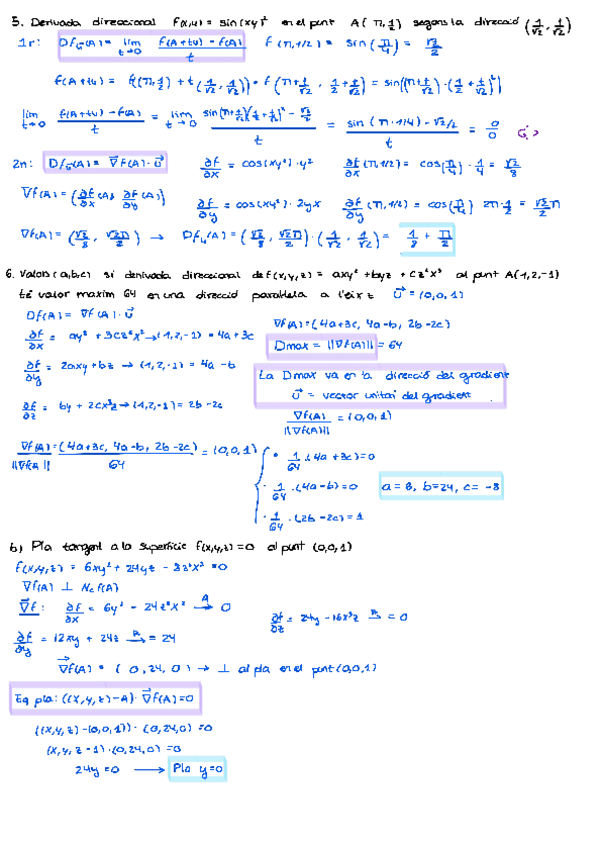 5. Derivada direccional f(x,y) = sin(xy²) en el punt A(π, 1/2) segons la direcció (1/√2, 1/√2)
1r: Df_u(A) = lim t→0 (f(A+tu) - f(A))/t f(π, 1/2) = sin(π/4) = √2/2
f(A+tu) = f((π, 1/2) + t(1/√2, 1/√2)) = f(π + t/√2, 1/2 + t/√2) = sin((π + t/√2)·(1/2 + t/√2)²)
lim t→0 (f(A+tu) - f(A))/t = lim t→0 (sin(π + t/√2)(1/2 + t/√2)² - √2/2)/t = (sin(π·1/4) - √2/2)/t = 0/0
2n: Df_u(A) = ∇f(A)·u ∂f/∂x = cos(xy²)·y² ∂f/∂x (π, 1/2) = cos(π/4)·1/4 = √2/8
∇f(A) = (∂f/∂x (A), ∂f/∂y (A)) ∂f/∂y = cos(xy²)·2yx ∂f/∂y (π, 1/2) = cos(π/4) 2π·1/2 = √2/2 π
∇f(A) = (√2/8, √2π/2) → Df_u(A) = (√2/8, √2π/2)·(1/√2, 1/√2) = 1/8 + π/2
6. Valors (a,b,c) si derivada direccional de f(x,y,z) = axy² + byz + cz²x³ al punt A(1,2,-1)
té valor maxim 64 en una direcció paral·lela a l'eix z u = (0,0,1)
Df(A) = ∇f(A)·u
∇f(A) = (4a+3c, 4a-b, 2b-2c)
∂f/∂x = ay² + 3cz²x² → (1,2,-1) = 4a + 3c
Dmax = ||∇f(A)|| = 64
∂f/∂y = 2axy + bz → (1,2,-1) = 4a - b
La Dmax va en la direcció del gradient
u = vector unitari del gradient
∂f/∂z = by + 2cx³z → (1,2,-1) = 2b - 2c
∇f(A)/||∇f(A)|| = (0,0,1)
∇f(A)/||∇f(A)|| = (4a+3c, 4a-b, 2b-2c)/64 = (0,0,1)
• 1/64·(4a+3c) = 0
• 1/64·(4a-b) = 0 a = 6, b = 24, c = -8
• 1/64·(2b-2c) = 1
b) Pla tangent a la superfície f(x,y,z) = 0 al punt (0,0,1)
f(x,y,z) = 6xy² + 24yz - 8z²x³ = 0
∇f(A) ⊥ Ncf(A)
∇f: ∂f/∂x = 6y² - 24z²x² →A 0 ∂f/∂z = 24y - 16x³z →A = 0
∂f/∂y = 12xy + 24z →A = 24
∇f(A) = (0, 24, 0) → ⊥ al pla en el punt (0,0,1)
Eq pla: ((x,y,z)-A)·∇f(A) = 0
((x,y,z)-(0,0,1))·(0,24,0) = 0
(x,y,z-1)·(0,24,0) = 0
24y = 0 → Pla y=0